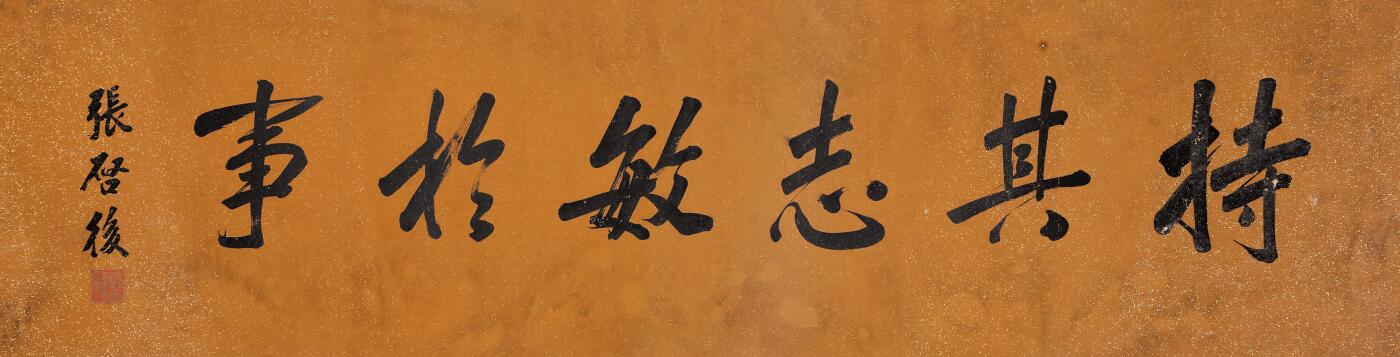 持其志敏於事
張啓後